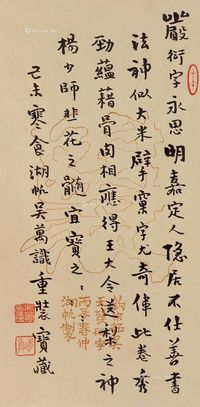 嚴衍字永思明嘉定人隱居不仕善書
法神似大米擘窠字尤奇偉此卷秀
勁蘊藉骨肉相應得王大令送梨之神
楊少師韭花之髓宜寶之
己未寒食湖帆吳萬識重裝寶藏
丙辰春仲
湖帆製